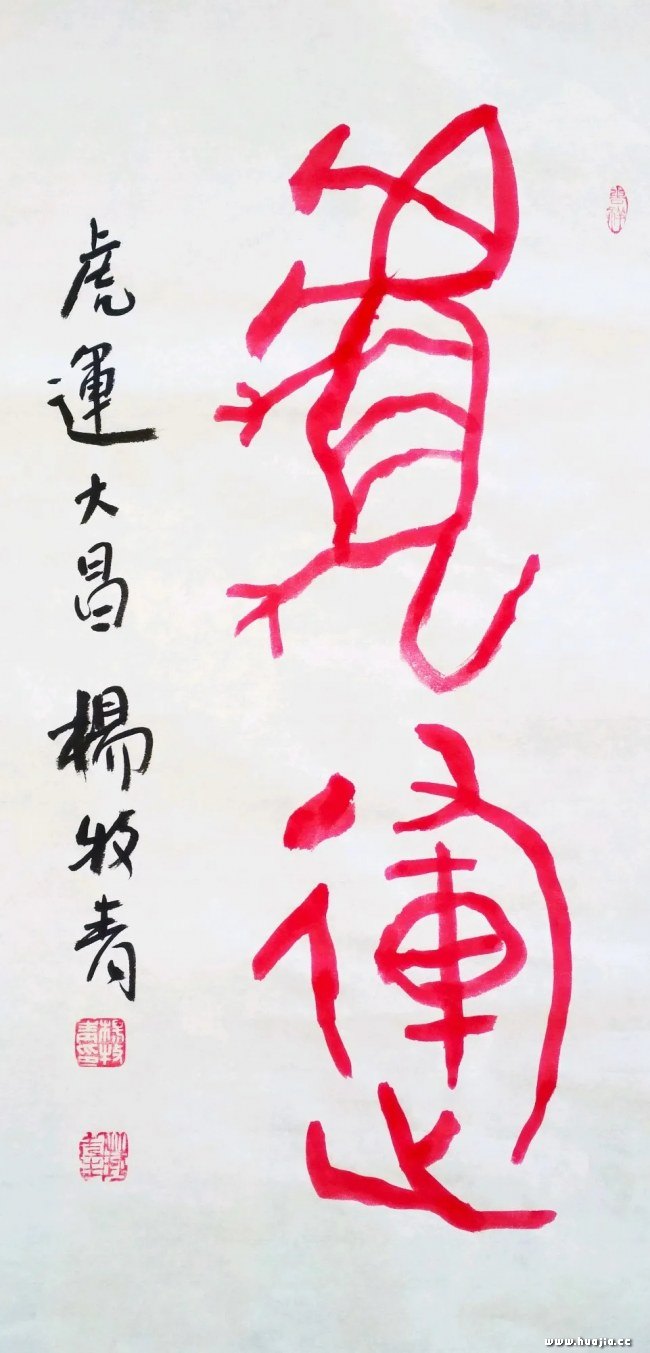 虎運
虎運大昌 楊牧青
楊牧青印
www.huajia.cc